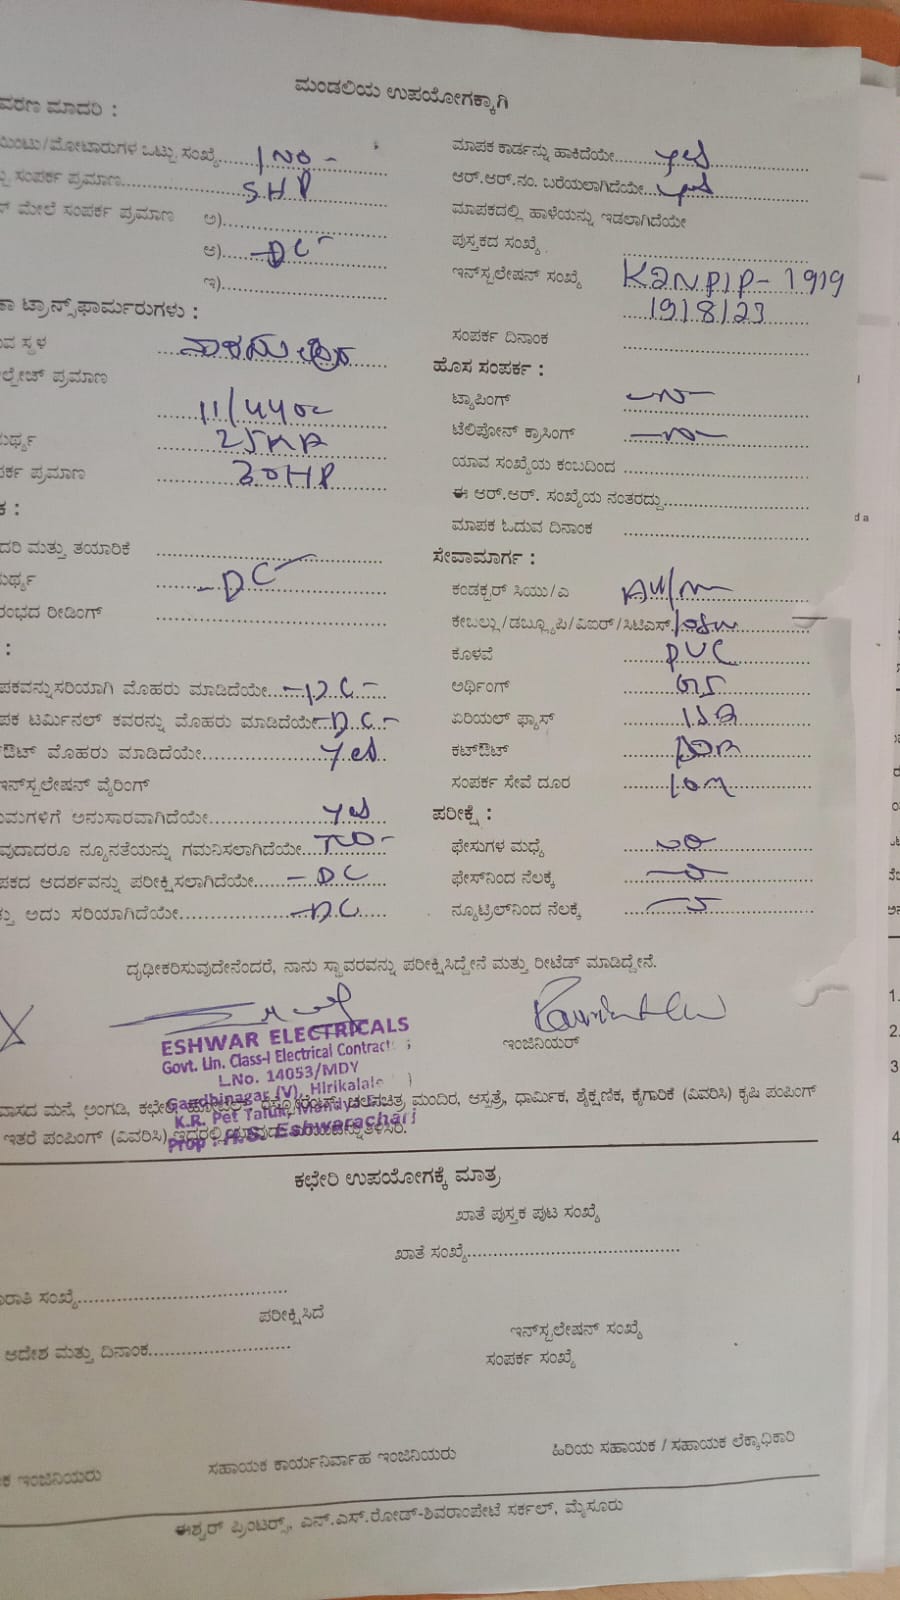 ಮಂಡಲಿಯ ಉಪಯೋಗಕ್ಕಾಗಿ
ವರಣ ಮಾದರಿ :
ಯಿಂಟು/ಮೋಟಾರುಗಳ ಒಟ್ಟು ಸಂಖ್ಯೆ 1 NO -
ಟ್ಟು ಸಂಪರ್ಕ ಪ್ರಮಾಣ 5HP
ಮೇಲೆ ಸಂಪರ್ಕ ಪ್ರಮಾಣ ಅ)
ಆ) - DC -
ಇ)
ಟ್ರಾನ್ಸ್‌ಫಾರ್ಮರುಗಳು :
ವ ಸ್ಥಳ
ಲ್ಟೇಜ್ ಪ್ರಮಾಣ
11/440
ಮರ್ಥ್ಯ 25KVA
ಪರ್ಕ ಪ್ರಮಾಣ 30HP
ಕ :
ದರಿ ಮತ್ತು ತಯಾರಿಕೆ
ಮರ್ಥ್ಯ - DC -
ರಂಭದ ರೀಡಿಂಗ್
:
ಪಕವನ್ನು ಸರಿಯಾಗಿ ಮೊಹರು ಮಾಡಿದೆಯೇ - D.C -
ಪಕ ಟರ್ಮಿನಲ್ ಕವರನ್ನು ಮೊಹರು ಮಾಡಿದೆಯೇ - D.C -
ಔಟ್ ಮೊಹರು ಮಾಡಿದೆಯೇ Yes
ಇನ್‌ಸ್ಟಲೇಷನ್ ವೈರಿಂಗ್
ಯಮಗಳಿಗೆ ಅನುಸಾರವಾಗಿದೆಯೇ Yes
ವುದಾದರೂ ನ್ಯೂನತೆಯನ್ನು ಗಮನಿಸಲಾಗಿದೆಯೇ
ಪಕದ ಆದರ್ಶವನ್ನು ಪರೀಕ್ಷಿಸಲಾಗಿದೆಯೇ - DC
ತ್ತು ಅದು ಸರಿಯಾಗಿದೆಯೇ - D.C
ಮಾಪಕ ಕಾರ್ಡನ್ನು ಹಾಕಿದೆಯೇ yes
ಆರ್.ಆರ್.ನಂ. ಬರೆಯಲಾಗಿದೆಯೇ yes
ಮಾಪಕದಲ್ಲಿ ಹಾಳೆಯನ್ನು ಇಡಲಾಗಿದೆಯೇ
ಪುಸ್ತಕದ ಸಂಖ್ಯೆ
ಇನ್‌ಸ್ಟಲೇಷನ್ ಸಂಖ್ಯೆ K2NPIP - 1919
19/8/23
ಸಂಪರ್ಕ ದಿನಾಂಕ
ಹೊಸ ಸಂಪರ್ಕ :
ಟ್ಯಾಪಿಂಗ್
ಟೆಲಿಪೋನ್ ಕ್ರಾಸಿಂಗ್
ಯಾವ ಸಂಖ್ಯೆಯ ಕಂಬದಿಂದ
ಈ ಆರ್.ಆರ್. ಸಂಖ್ಯೆಯ ನಂತರದ್ದು
ಮಾಪಕ ಓದುವ ದಿನಾಂಕ
ಸೇವಾಮಾರ್ಗ :
ಕಂಡಕ್ಟರ್ ಸಿಯು/ಎ
ಕೇಬಲ್ಲು/ಡಬ್ಲ್ಯೂಪಿ/ವಿಐಆರ್/ಸಿಟಿಎಸ್
ಕೊಳವೆ PVC
ಅರ್ಥಿಂಗ್
ಏರಿಯಲ್ ಫ್ಯೂಸ್
ಕಟ್‌ಔಟ್
ಸಂಪರ್ಕ ಸೇವೆ ದೂರ 10m
ಪರೀಕ್ಷೆ :
ಫೇಸುಗಳ ಮಧ್ಯೆ
ಫೇಸ್‌ನಿಂದ ನೆಲಕ್ಕೆ
ನ್ಯೂಟ್ರಲ್‌ನಿಂದ ನೆಲಕ್ಕೆ
ದೃಢೀಕರಿಸುವುದೇನೆಂದರೆ, ನಾನು ಸ್ಥಾವರವನ್ನು ಪರೀಕ್ಷಿಸಿದ್ದೇನೆ ಮತ್ತು ರೀಟೆಡ್ ಮಾಡಿದ್ದೇನೆ.
ಇಂಜಿನಿಯರ್
ESHWAR ELECTRICALS
Govt. Lin. Class-I Electrical Contract
L.No. 14053/MDY
Gandhinagar (V), Hirikalale
K.R. Pet Taluk, Mandya
Prop : H.S. Eshwarachari
ವಾಸದ ಮನೆ, ಅಂಗಡಿ, ಕಛೇರಿ, ಹೋಟೆಲ್, ರೆಸ್ಟೋರೆಂಟ್, ಚಲನಚಿತ್ರ ಮಂದಿರ, ಆಸ್ಪತ್ರೆ, ಧಾರ್ಮಿಕ, ಶೈಕ್ಷಣಿಕ, ಕೈಗಾರಿಕೆ (ವಿವರಿಸಿ) ಕೃಷಿ ಪಂಪಿಂಗ್
ಇತರೆ ಪಂಪಿಂಗ್ (ವಿವರಿಸಿ) ಇದರಲ್ಲಿ
ಕಛೇರಿ ಉಪಯೋಗಕ್ಕೆ ಮಾತ್ರ
ಖಾತೆ ಪುಸ್ತಕ ಪುಟ ಸಂಖ್ಯೆ
ಖಾತೆ ಸಂಖ್ಯೆ
ರಾತಿ ಸಂಖ್ಯೆ
ಪರೀಕ್ಷಿಸಿದೆ
ಇನ್‌ಸ್ಟಲೇಷನ್ ಸಂಖ್ಯೆ
ಆದೇಶ ಮತ್ತು ದಿನಾಂಕ
ಸಂಪರ್ಕ ಸಂಖ್ಯೆ
ಕ ಇಂಜಿನಿಯರು ಸಹಾಯಕ ಕಾರ್ಯನಿರ್ವಾಹ ಇಂಜಿನಿಯರು ಹಿರಿಯ ಸಹಾಯಕ / ಸಹಾಯಕ ಲೆಕ್ಕಾಧಿಕಾರಿ
ಈಶ್ವರ್ ಪ್ರಿಂಟರ್ಸ್, ಎನ್.ಎಸ್.ರೋಡ್-ಶಿವರಾಂಪೇಟೆ ಸರ್ಕಲ್, ಮೈಸೂರು